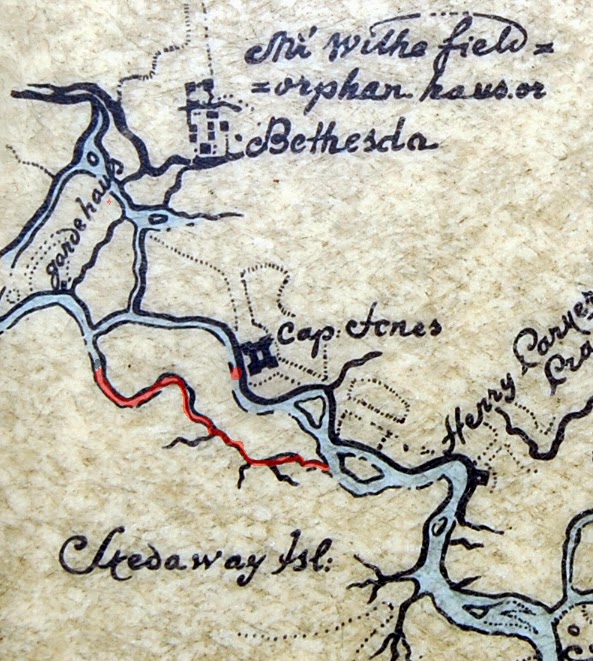 Mr Withe field=
=orphan haus.or
Bethesda
gardehaus
Cap: Jones
Henry
Skedaway Isl: